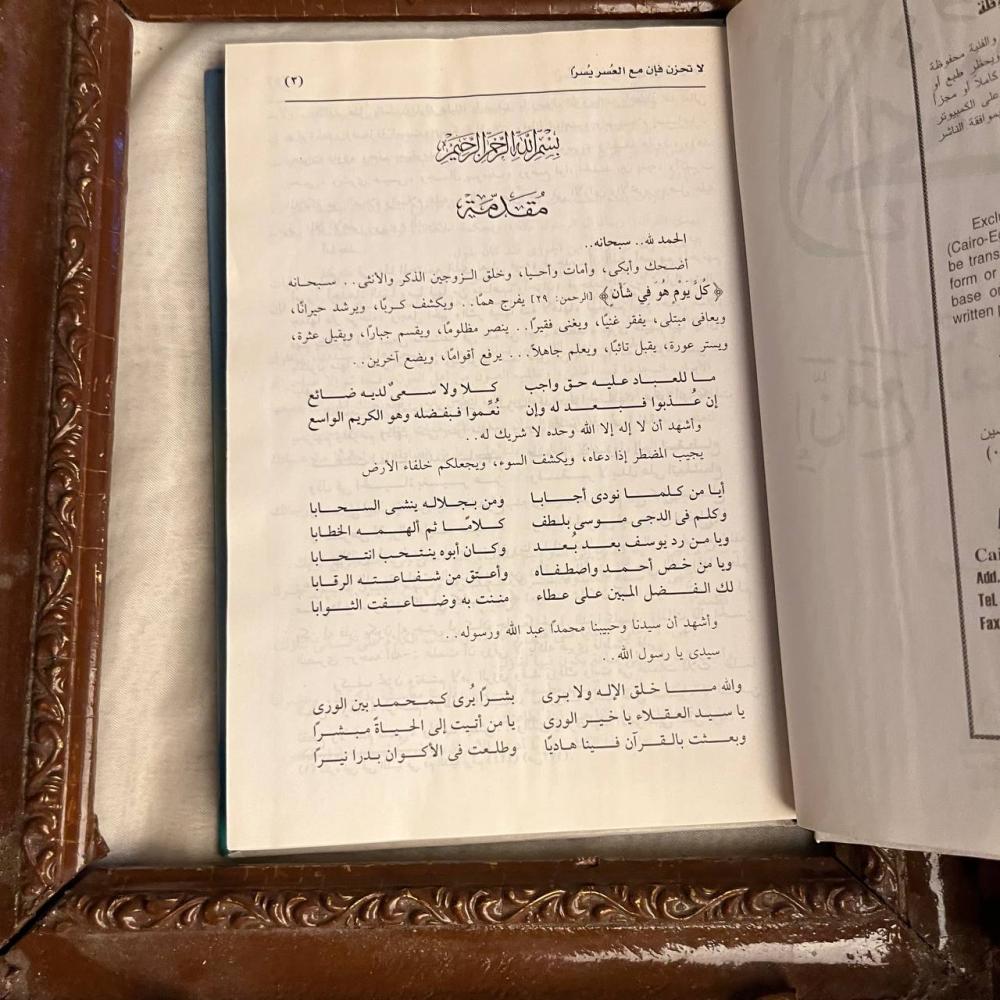 لا تحزن فإن مع العُسر يُسرًا
(٣)
بسم الله الرحمن الرحيم
مُقدِّمة
الحمد لله.. سبحانه..
أضحك وأبكى، وأمات وأحيا، وخلق الزوجين الذكر والأنثى.. سبحانه
﴿كُلَّ يَوْمٍ هُوَ فِي شَأْنٍ﴾ [الرحمن: ٢٩] يفرج همًا.. ويكشف كربًا، ويرشد حيرانًا،
ويعافى مبتلى، يفقر غنيًا، ويغنى فقيرًا.. ينصر مظلومًا، ويقسم جبارًا، ويقيل عثرة،
ويستر عورة، يقبل تائبًا، ويعلم جاهلاً... يرفع أقوامًا، ويضع آخرين..
ما للعباد عليه حق واجب كلا ولا سعىٌ لديه ضائع
إن عُذبوا فبعدله وإن نُعِّموا فبفضله وهو الكريم الواسع
وأشهد أن لا إله إلا الله وحده لا شريك له..
يجيب المضطر إذا دعاه، ويكشف السوء، ويجعلكم خلفاء الأرض
أيا من كلما نودى أجابا ومن بجلاله ينشى السحابا
وكلم فى الدجى موسى بلطف كلامًا ثم ألهمه الخطابا
ويا من رد يوسف بعد بُعد وكان أبوه ينتحب انتحابا
ويا من خص أحمد واصطفاه وأعتق من شفاعته الرقابا
لك الفضل المبين على عطاء مننت به وضاعفت الثوابا
وأشهد أن سيدنا وحبيبنا محمدًا عبد الله ورسوله..
سيدى يا رسول الله..
والله ما خلق الإله ولا برى بشرًا يُرى كمحمد بين الورى
يا سيد العقلاء يا خير الورى يا من أتيت إلى الحياة مبشرًا
وبعثت بالقرآن فينا هاديًا وطلعت فى الأكوان بدرا نيرًا
والفنية محفوظة
ويحظر طبع أو
كاملاً أو مجزأ
على الكمبيوتر
بموافقة الناشر
Excl
(Cairo-E
be trans
form or
base or
written
Cai
Add.
Tel.
Fax